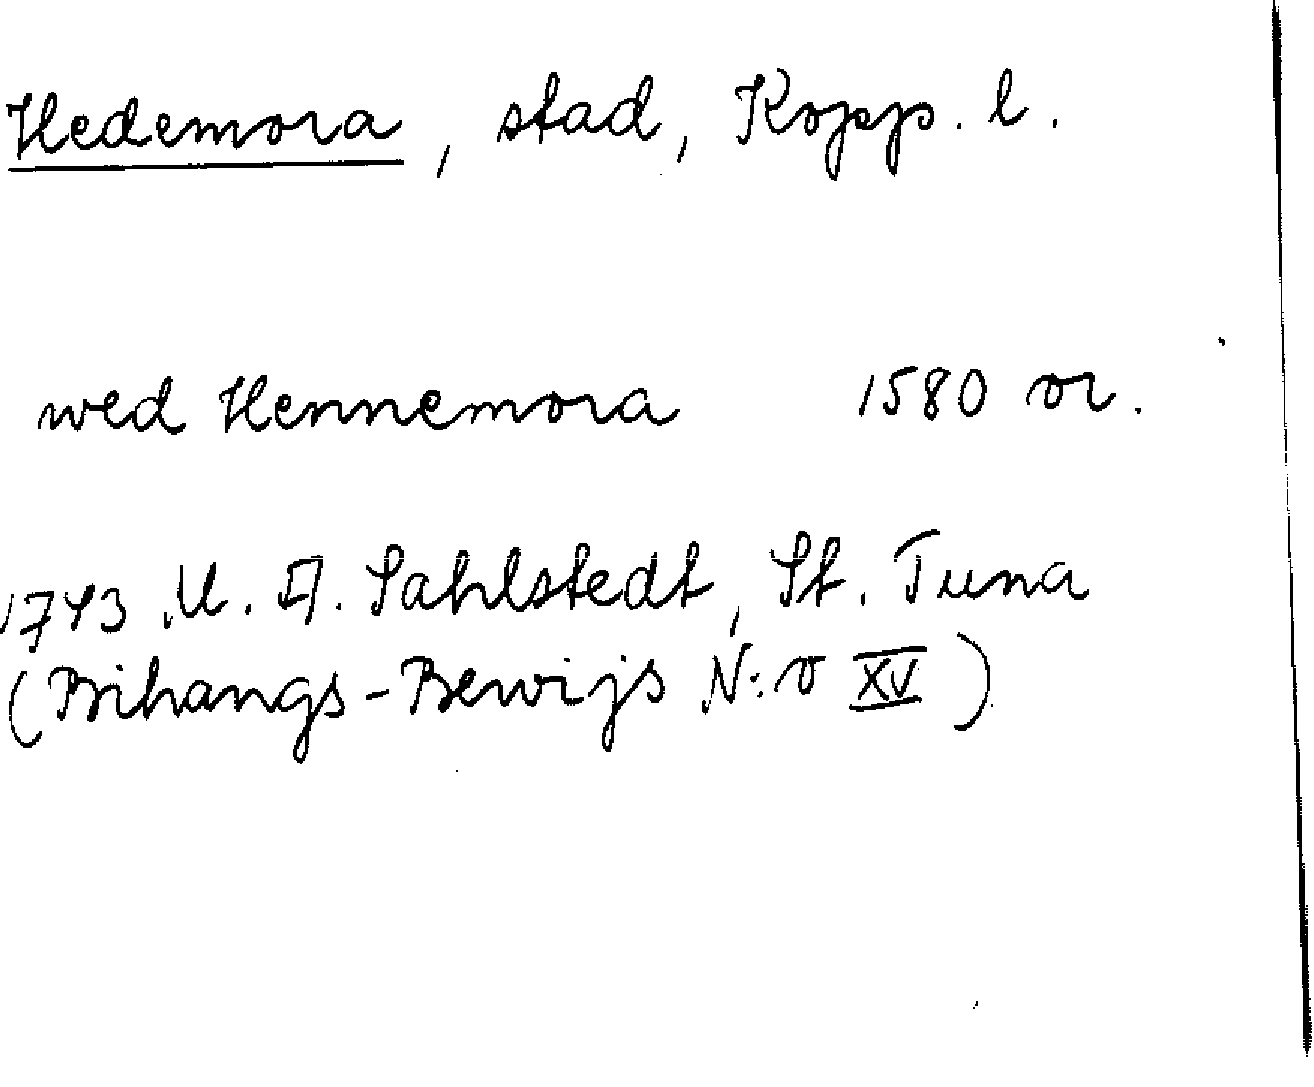 Hedemora, stad, Kopp. l.
wed Hennemora 1580 or.
1743 U. A. Sahlstedt, St. Tuna
(Bihangs-Bewijs N:o XV)